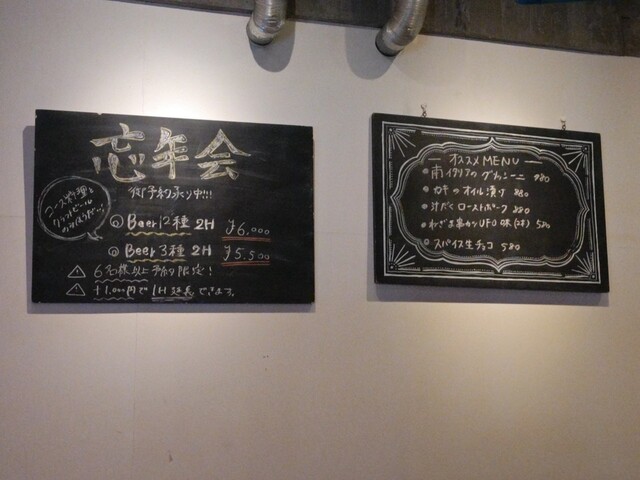 忘年会
御予約承り中!!!
コース料理と
クラフトビール
◎ Beer12種 2H ¥6,000
◎ Beer3種 2H ¥5,500
⚠ 6名様以上予約限定!
⚠ +1,000円で1H延長できます。
オススメMENU
• 南イタリアの 980
• カキのオイル漬け 880
• 汁だくローストポーク 880
• ねぎま串カツUFO 580
• スパイス生チョコ 580